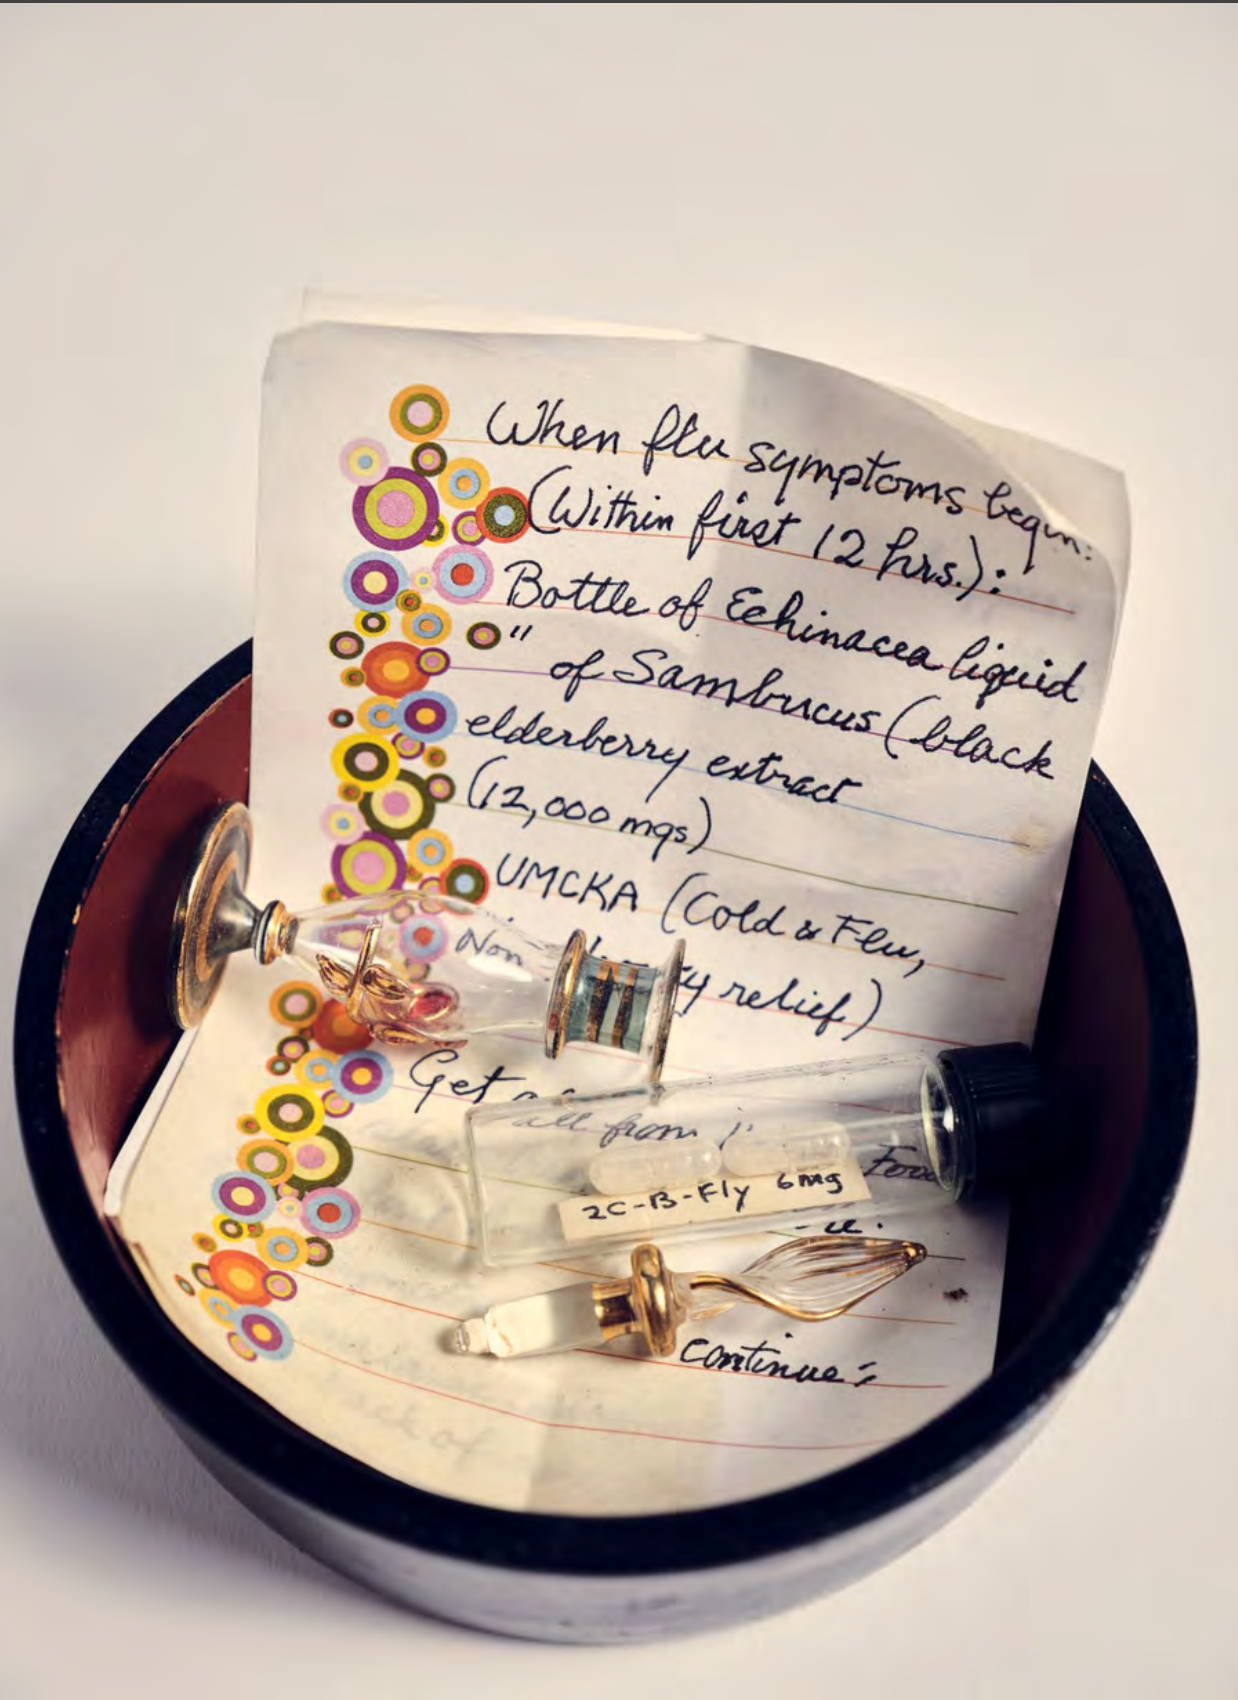 When flu symptoms begin:
(Within first 12 hrs.):
Bottle of Echinacea liquid
" of Sambucus (black
elderberry extract
(12,000 mgs)
UMCKA (Cold & Flu,
Non relief)
Get
all from
Food
2C-B-Fly 6mg
continue: